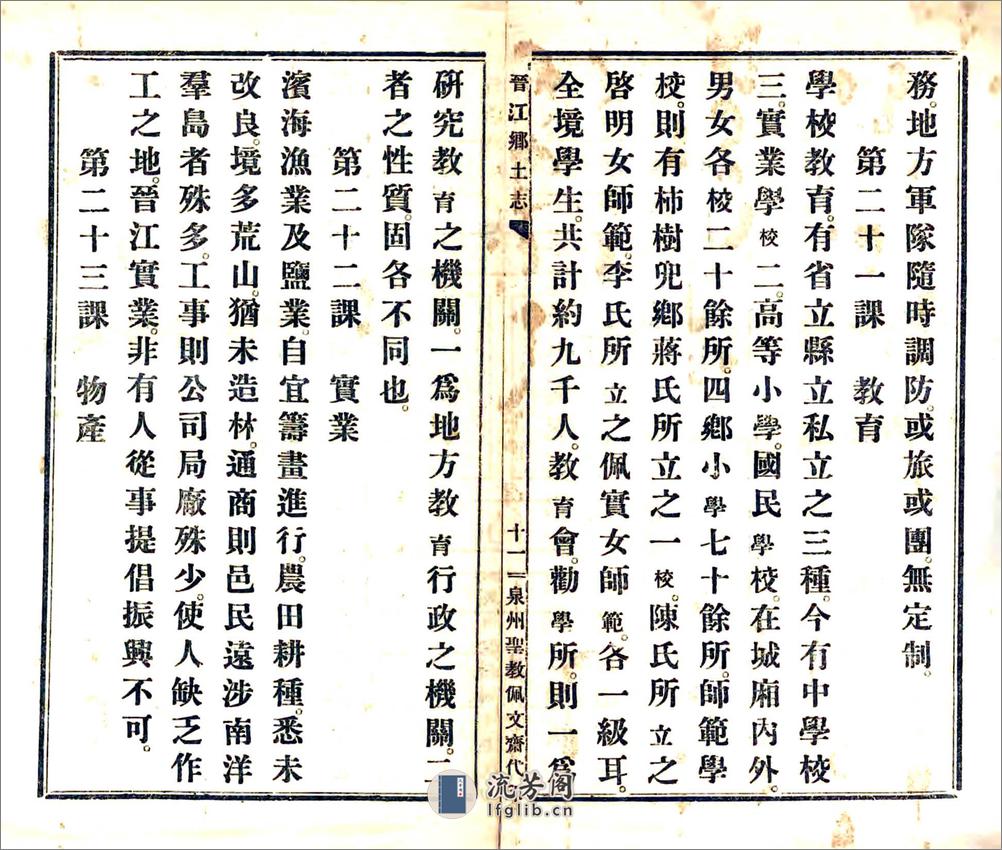 務。地方軍隊隨時調防。或旅或團。無定制。
第二十一課 教育
學校教育。有省立縣立私立之三種。今有中學校
三。實業學校二。高等小學。國民學校。在城廂內外。
男女各校二十餘所。四鄉小學七十餘所。師範學
校。則有柿樹兜鄉蔣氏所立之一校。陳氏所立之
啓明女師範。李氏所立之佩實女師範。各一級耳。
全境學生。共計約九千人。教育會。勸學所。則一爲
晉江鄉土志
十一
泉州聖教佩文齋代
硏究教育之機關。一爲地方教育行政之機關。二
者之性質。固各不同也。
第二十二課 實業
濱海漁業及鹽業。自宜籌畫進行。農田耕種。悉未
改良。境多荒山。猶未造林。通商則邑民遠涉南洋
羣島者殊多。工事則公司局廠殊少。使人缺乏作
工之地。晉江實業。非有人從事提倡振興不可。
第二十三課 物產
流芳阁
lfglib.cn